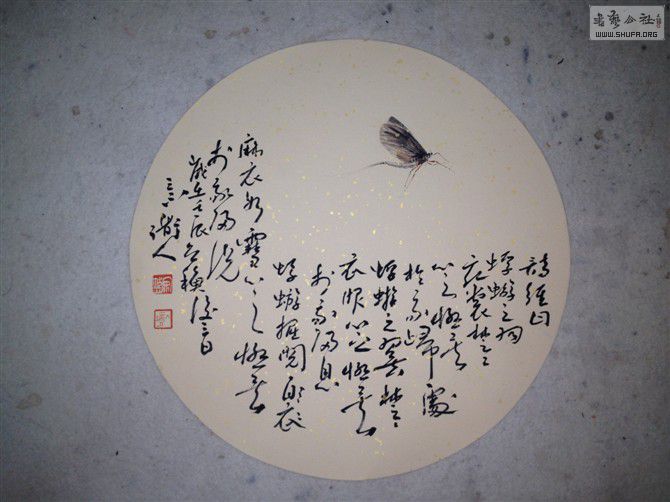 詩經曰
蜉蝣之羽
衣裳楚楚
心之憂矣
於我歸處
蜉蝣之翼
衣服心之憂矣
於我歸息
蜉蝣掘閱
麻衣如雪心之憂矣
於我歸說
歲在壬辰
人
書藝公社
WWW.SHUFA.ORG